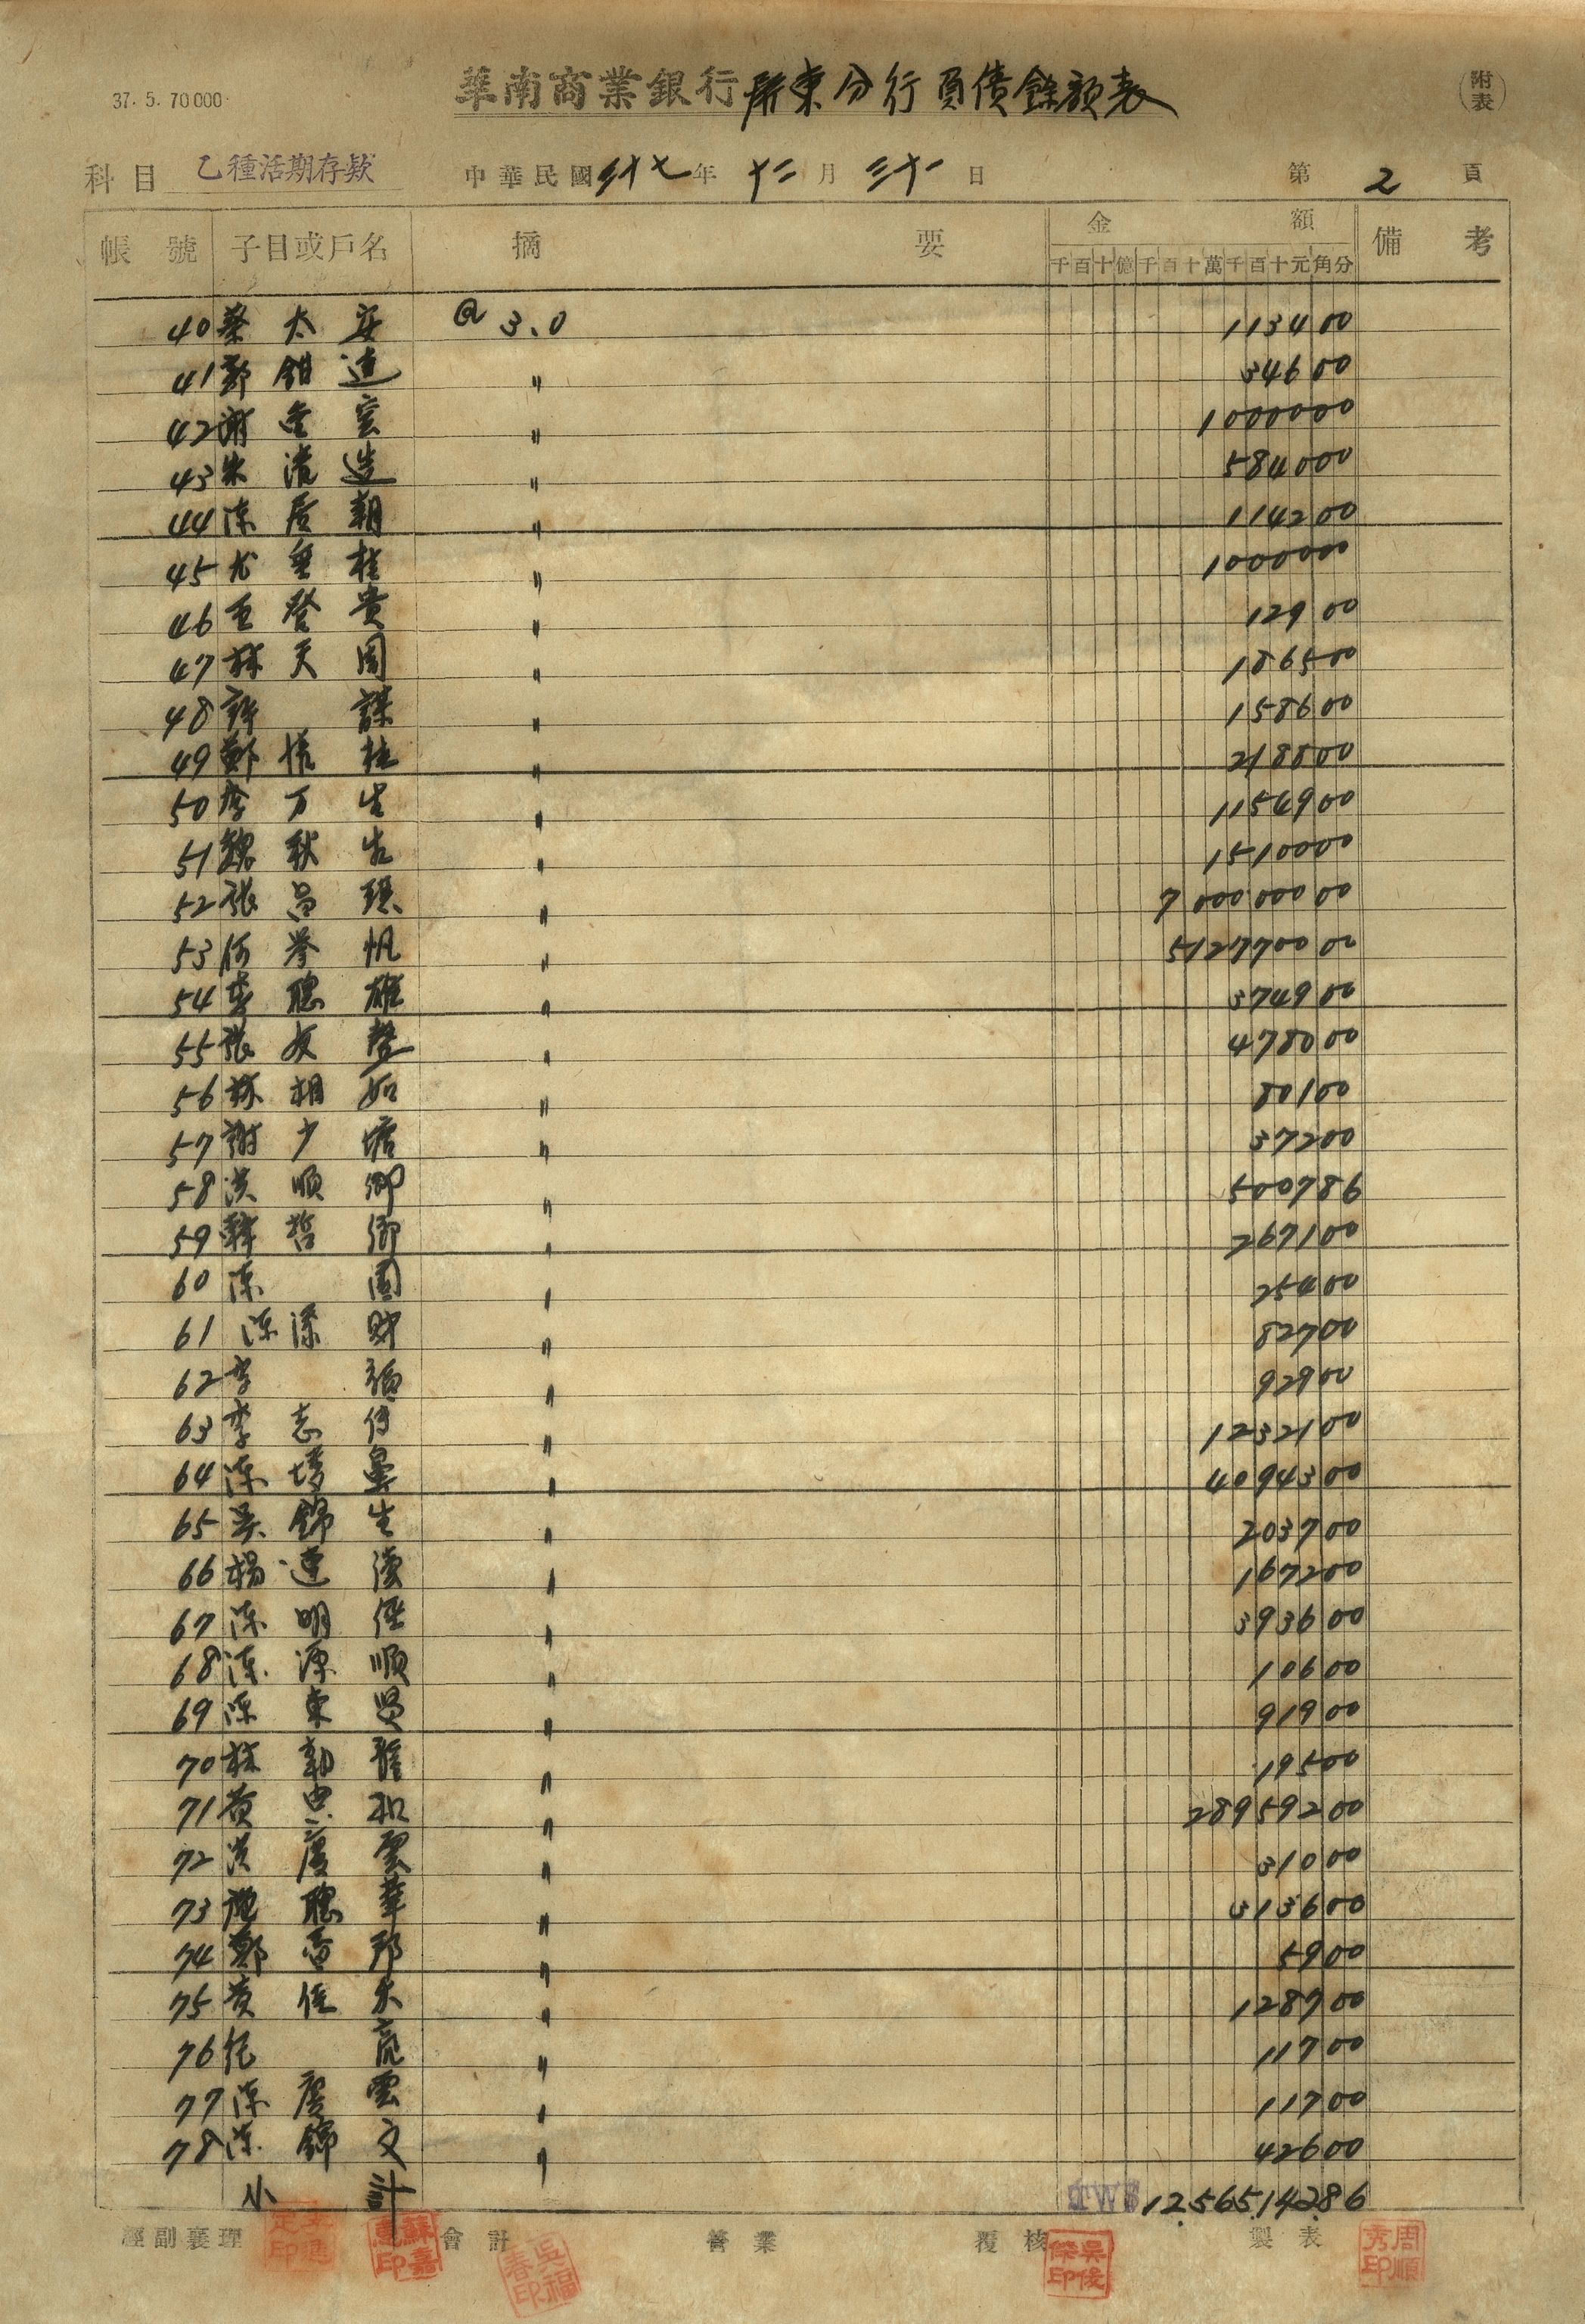 華南商業銀行屏東分行負債餘額表
37. 5. 70000
附表
科目 乙種活期存款 中華民國卅七年 十二月 三十一日 第 2 頁
帳號 子目或戶名 摘要 金額 備考
千百十億千百十萬千百十元角分
40 蔡太安 @ 3.0 113400
41 鄭鉗連 〃 34600
42 謝 〃 1000000
43 朱清造 〃 584000
44 陳居朝 〃 114200
45 尤 桂 〃 1000000
46 王登貴 〃 12900
47 林天固 〃 186500
48 許謀 〃 158600
49 鄭 桂 〃 218800
50 李万生 〃 1154900
51 魏秋吉 〃 1510000
52 張昌 〃 700000000
53 何 帆 〃 512770000
54 李聰雄 〃 374900
55 張友聲 〃 478000
56 林相如 〃 80100
57 謝少塘 〃 37200
58 洪順卿 〃 500786
59 韓哲卿 〃 267100
60 陳園 〃 25400
61 陳添財 〃 82700
62 李福 〃 92900
63 李志傳 〃 1232100
64 陳 〃 4094300
65 吳錦生 〃 203700
66 楊連 〃 167200
67 陳明 〃 393600
68 陳源順 〃 10600
69 陳東興 〃 91900
70 林朝龍 〃 19500
71 黃忠和 〃 28959200
72 洪慶雲 〃 31000
73 施聰華 〃 313600
74 鄭 邦 〃 5900
75 黃 〃 128700
76 紀亮 〃 11700
77 陳慶雲 〃 11700
78 陳錦文 〃 42600
小計 TW$ 12.565.142.86
經副襄理 會計 營業 覆核 製表
蘇嘉惠印 吳福春印 吳俊傑印 周順秀印